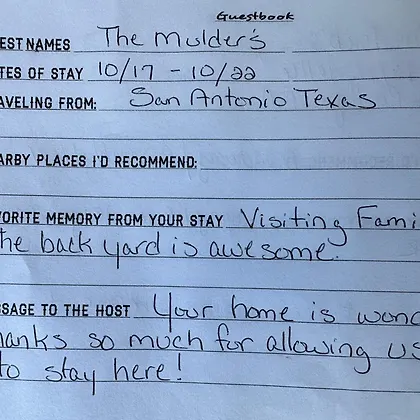 Guestbook
EST NAMES The Mulder's
TES OF STAY 10/17 - 10/22
AVELING FROM: San Antonio Texas
ARBY PLACES I'D RECOMMEND:
VORITE MEMORY FROM YOUR STAY Visiting Fami
he back yard is awesome.
SSAGE TO THE HOST Your home is wond
hanks so much for allowing us
to stay here!